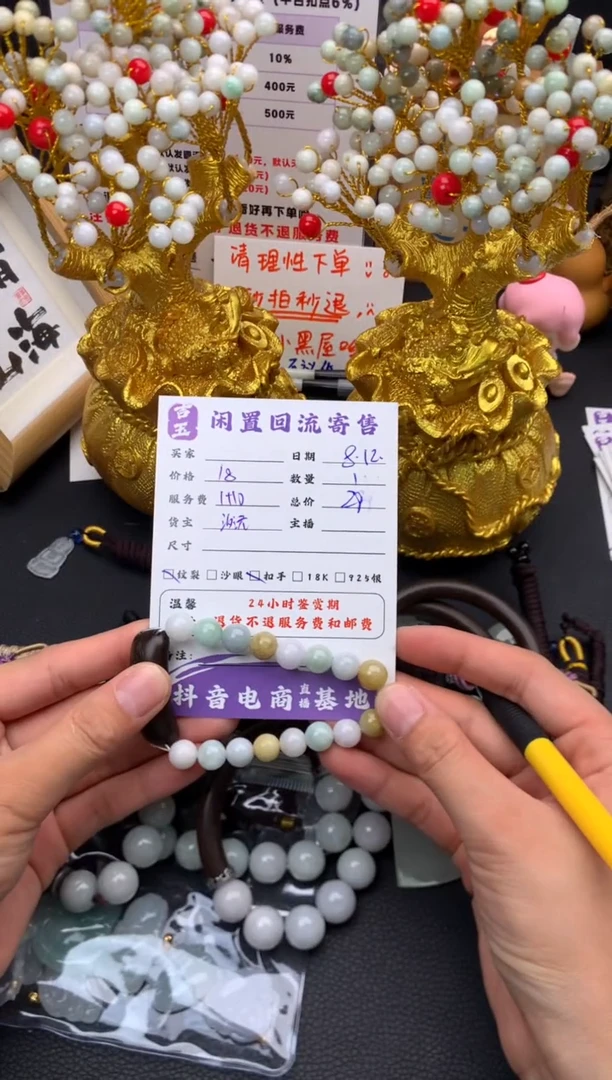 (平台扣点6%)
服务费
10%
400元
500元
退货不退服务费
清理性下单
秒拍秒退
小黑屋
吉玉
闲置回流寄售
买家
日期 8.12.
价格 18
数量 1
服务费 1+10
总价 29
货主
主播
尺寸
纹裂 沙眼 扣手 18K 925银
温馨
24小时鉴赏期
退货不退服务费和邮费
备注:
抖音电商直播基地